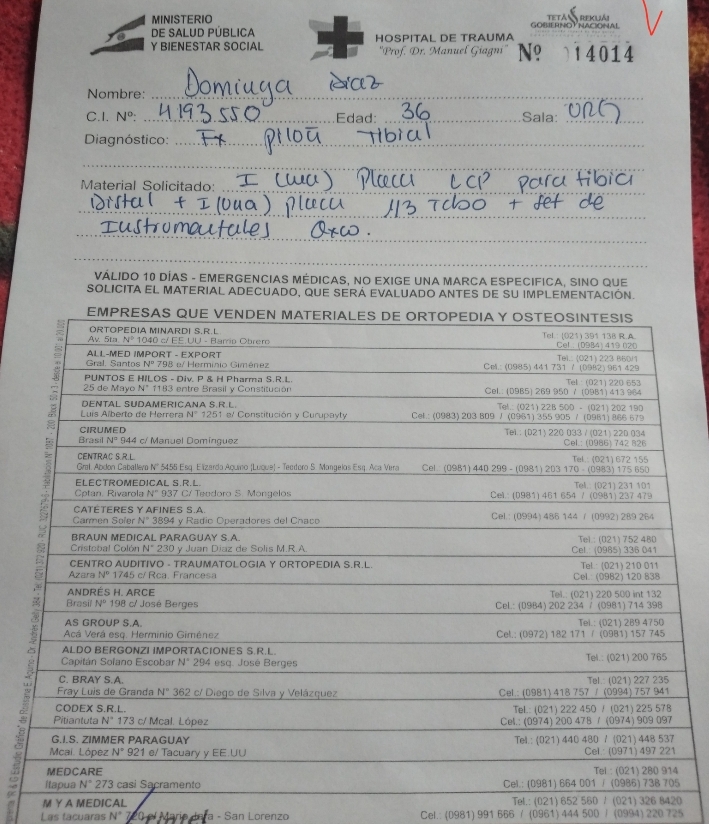 MINISTERIO
DE SALUD PÚBLICA
Y BIENESTAR SOCIAL
HOSPITAL DE TRAUMA
"Prof. Dr. Manuel Giagni"
TETÃ REKUÁI
GOBIERNO NACIONAL
Nº 014014
Nombre: Dominga Diaz
C.I. Nº: 4193.550 Edad: 36 Sala: URG
Diagnóstico: Fx pilon tibial
Material Solicitado: I (una) Placa LCP para tibia
Distal + I (una) placa 1/3 Tubo + set de
Instrumentales Oxco.
VÁLIDO 10 DÍAS - EMERGENCIAS MÉDICAS, NO EXIGE UNA MARCA ESPECIFICA, SINO QUE
SOLICITA EL MATERIAL ADECUADO, QUE SERÁ EVALUADO ANTES DE SU IMPLEMENTACIÓN.
EMPRESAS QUE VENDEN MATERIALES DE ORTOPEDIA Y OSTEOSINTESIS
ORTOPEDIA MINARDI S.R.L Tel: (021) 391 138 R.A.
Av. 5ta. Nº 1040 c/ EE.UU - Barrio Obrero Cel. (0984) 419 020
ALL-MED IMPORT - EXPORT Tel.: (021) 223 860/1
Gral. Santos Nº 798 e/ Herminio Giménez Cel.: (0985) 441 731 / (0982) 961 429
PUNTOS E HILOS - Div. P & H Pharma S.R.L. Tel.: (021) 220 653
25 de Mayo N° 1183 entre Brasil y Constitución Cel.: (0985) 269 950 / (0981) 413 964
DENTAL SUDAMERICANA S.R.L. Tel.: (021) 228 500 - (021) 202 190
Luis Alberto de Herrera N° 1251 e/ Constitución y Curupayty Cel.: (0983) 203 809 / (0961) 355 905 / (0981) 866 679
CIRUMED Tel.: (021) 220 033 / (021) 220 034
Brasil Nº 944 c/ Manuel Domínguez Cel.: (0986) 742 826
CENTRAC S.R.L. Tel.: (021) 672 155
Gral. Abdon Caballero N° 5456 Esq. Elizardo Aquino (Luque) - Teodoro S. Mongelos Esq. Aca Vera Cel.: (0981) 440 299 - (0981) 203 170 - (0983) 175 650
ELECTROMEDICAL S.R.L. Tel.: (021) 231 101
Cptan. Rivarola N° 937 C/ Teodoro S. Mongelos Cel.: (0981) 461 654 / (0981) 237 479
CATÉTERES Y AFINES S.A.
Carmen Soler N° 3894 y Radio Operadores del Chaco Cel.: (0994) 486 144 / (0992) 289 264
BRAUN MEDICAL PARAGUAY S.A. Tel.: (021) 752 480
Cristobal Colón N° 230 y Juan Díaz de Solis M.R.A. Cel.: (0985) 338 041
CENTRO AUDITIVO - TRAUMATOLOGIA Y ORTOPEDIA S.R.L. Tel.: (021) 210 011
Azara N° 1745 c/ Rca. Francesa Cel.: (0982) 120 838
ANDRÉS H. ARCE Tel.: (021) 220 500 int 132
Brasil Nº 198 c/ José Berges Cel.: (0984) 202 234 / (0981) 714 398
AS GROUP S.A. Tel.: (021) 289 4750
Acá Verá esq. Herminio Giménez Cel.: (0972) 182 171 / (0981) 157 745
ALDO BERGONZI IMPORTACIONES S.R.L.
Capitán Solano Escobar N° 294 esq. José Berges Tel.: (021) 200 765
C. BRAY S.A. Tel.: (021) 227 235
Fray Luis de Granda N° 362 c/ Diego de Silva y Velázquez Cel.: (0981) 418 757 / (0994) 757 941
CODEX S.R.L. Tel.: (021) 222 450 / (021) 225 578
Pitiantuta N° 173 c/ Mcal. López Cel.: (0974) 200 478 / (0974) 909 097
G.I.S. ZIMMER PARAGUAY Tel.: (021) 440 480 / (021) 448 537
Mcal. López N° 921 e/ Tacuary y EE.UU Cel.: (0971) 497 221
MEDCARE Tel.: (021) 280 914
Itapua N° 273 casi Sacramento Cel.: (0981) 664 001 / (0986) 738 705
M Y A MEDICAL Tel.: (021) 652 560 / (021) 326 8420
Las tacuaras N° 720 e/ - San Lorenzo Cel.: (0981) 991 866 / (0961) 444 500 / (0994) 220 725